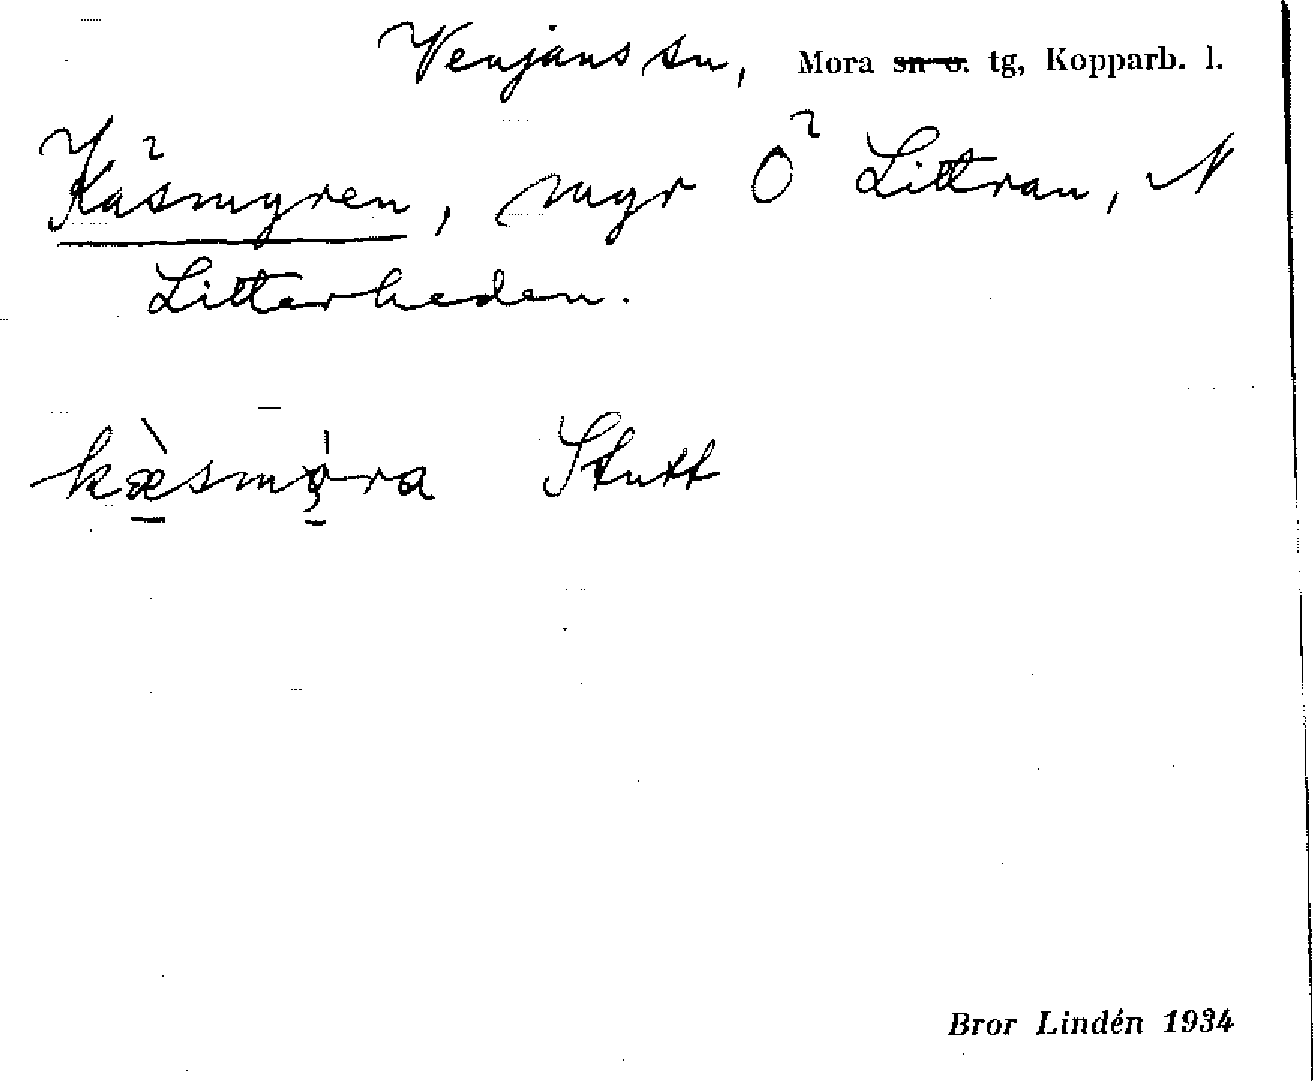 Venjans sn, Mora ~~sn o.~~ tg, Kopparb. l.
Käsmyren, myr Ö Littran, N
Litterheden.
kæ̀smỳ̨ra Stutt
Bror Lindén 1934